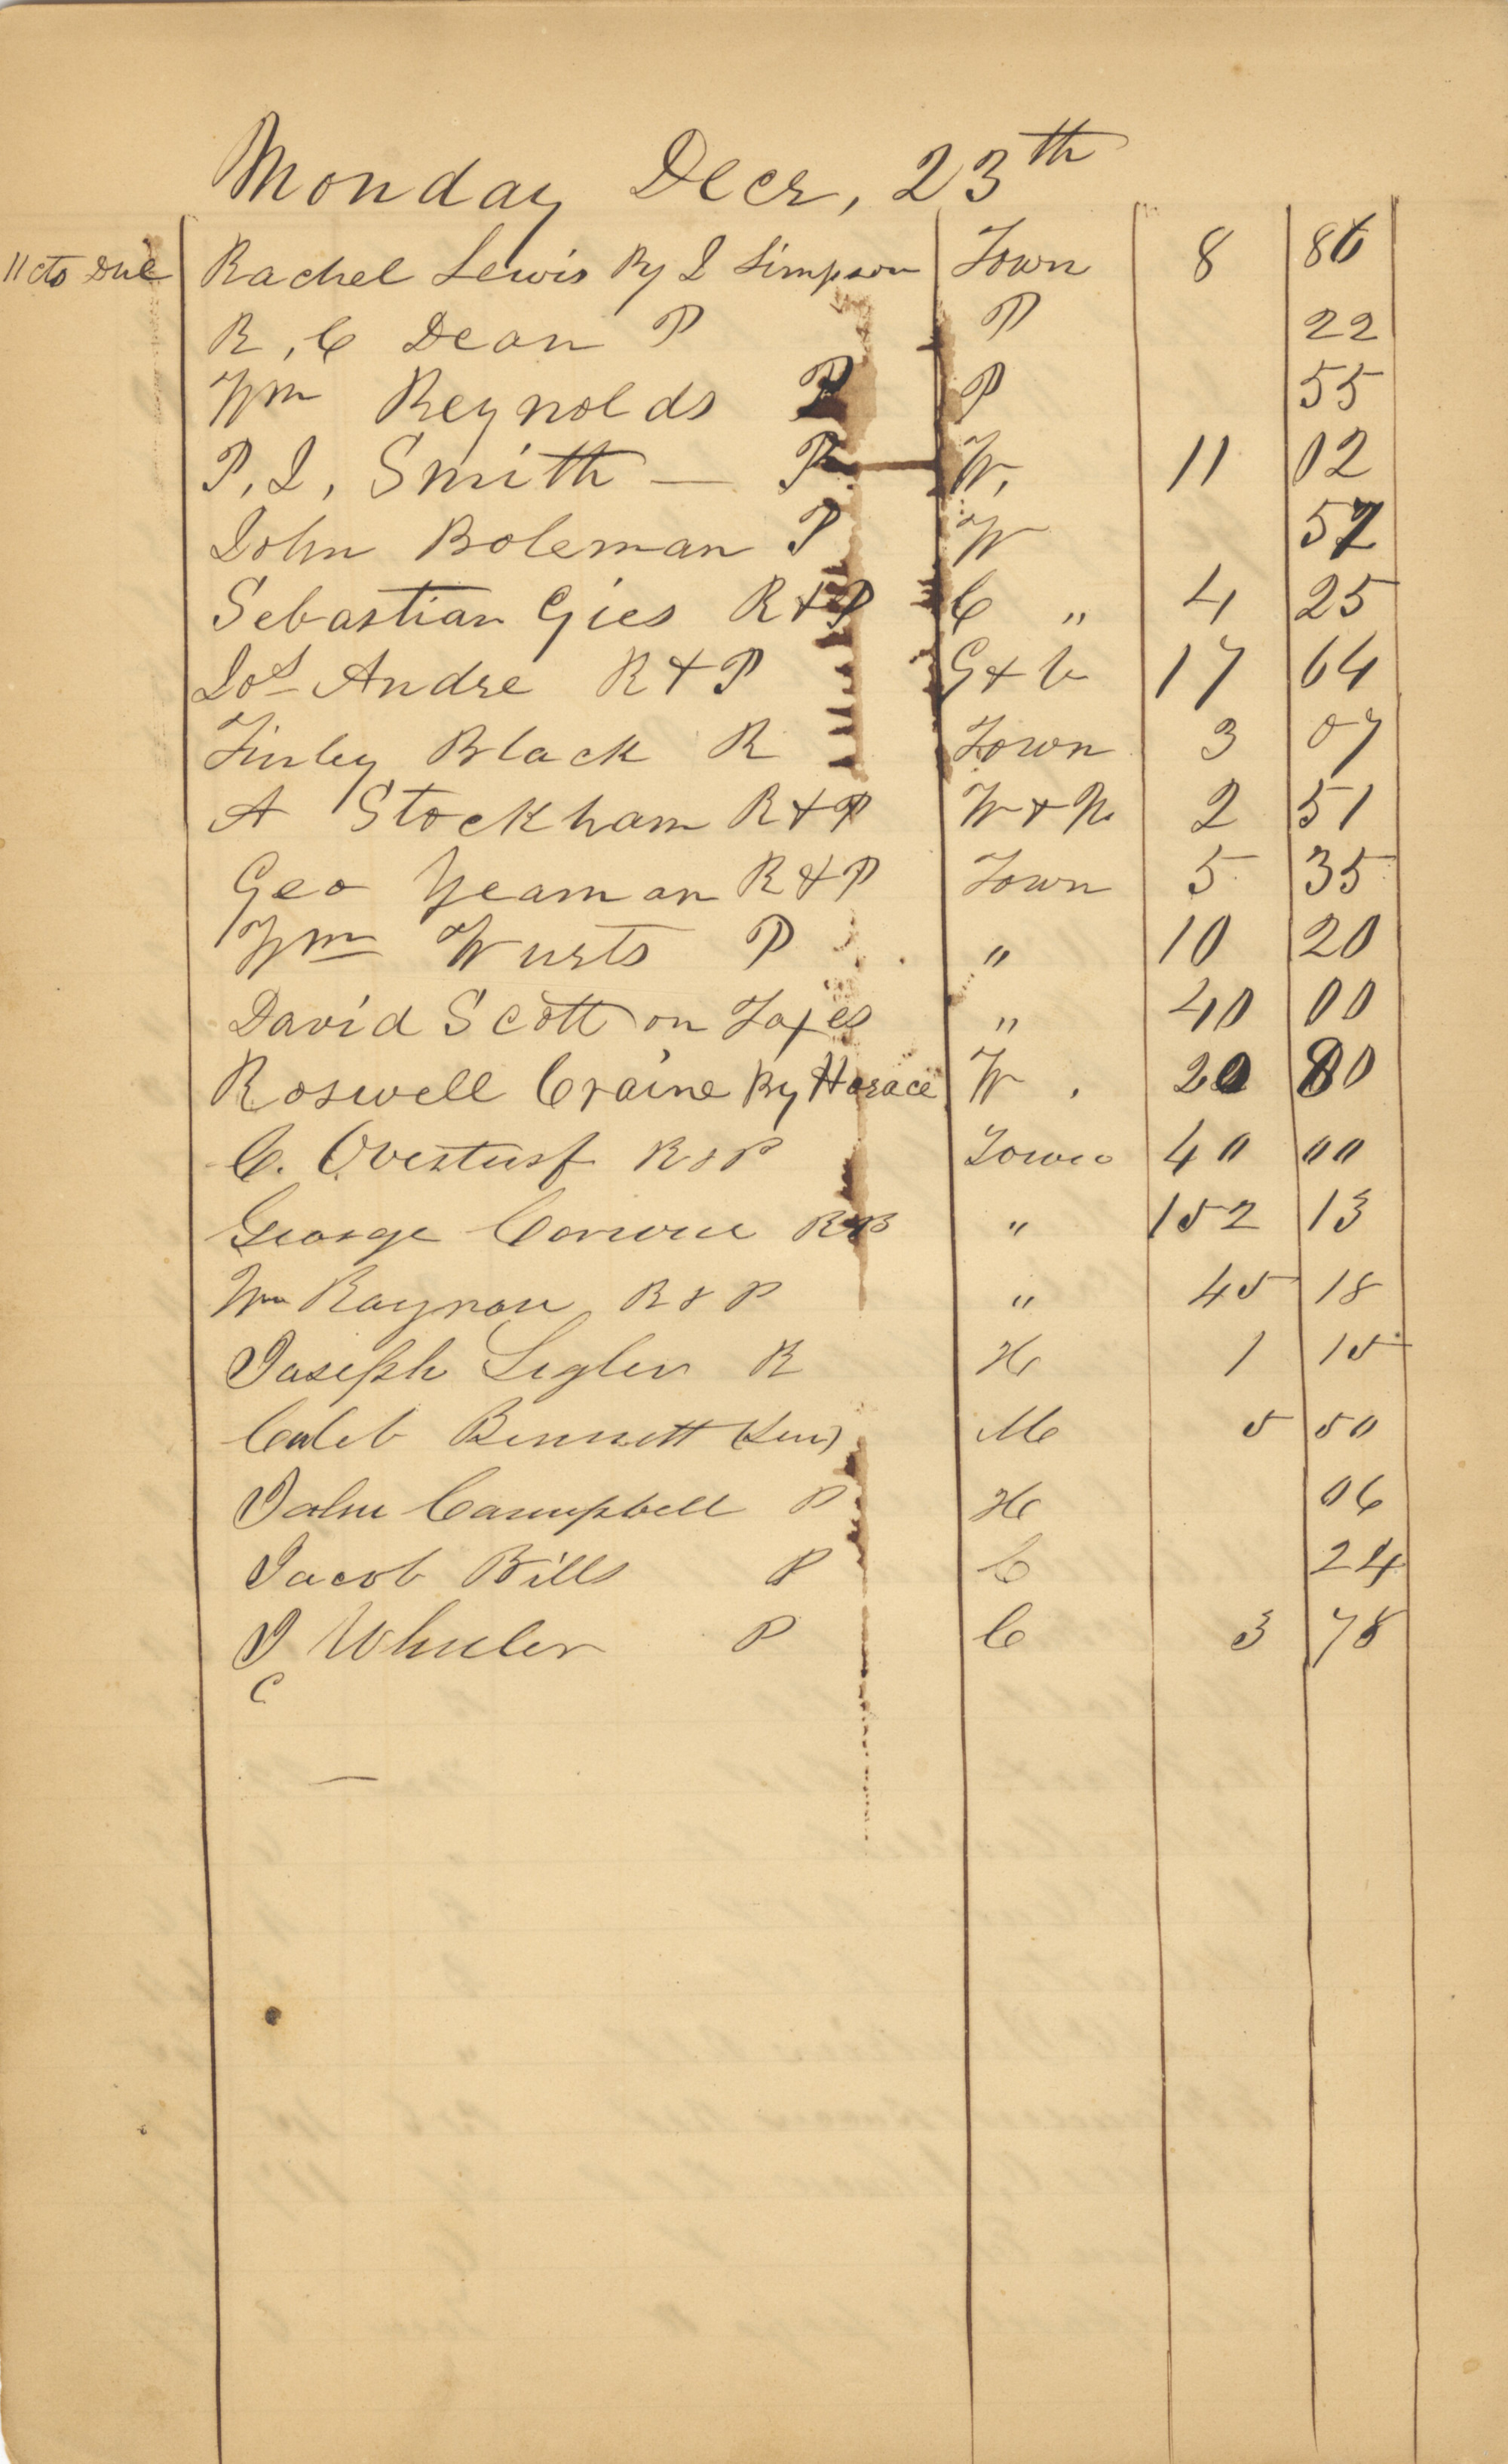 Monday Decr, 23th
11 cts Due Rachel Lewis By I Simpson Town 8 86
R, C Dean P P 22
Wm Reynolds P P 55
P, I, Smith — P W, 11 02
John Boleman P W 57
Sebastian Gies R & P C " 4 25
Jos Andre R & P G & V 17 64
Finley Black R Town 3 07
A Stockham R & P W & N 2 51
Geo Yeaman R & P Town 5 35
Wm Wurts P " 10 20
David Scott on Taxes " 40 00
Roswell Craine By Horace W . 20 80
C. Oversturf R & P Town 40 00
George Corwine R & P " 152 13
Wm Raynor R & P " 45 18
Joseph Sigler R H 1 15
Caleb Bennett (Sen) M 5 50
John Campbell P H 06
Jacob Bills P C 24
J Wheeler P C 3 78
C
—